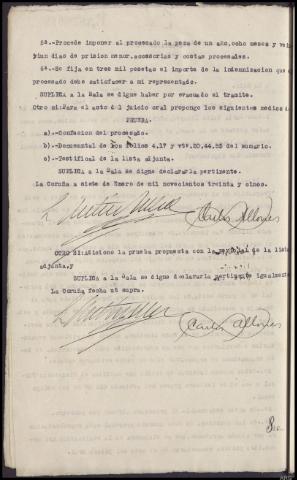 5a.-Procede imponer al procesado la pena de un año,ocho meses y vei
yiun dias de prision menor,accesorias y costas procesales.
6a.-Se fija en tres mil pesetas el importe de la indemnizacion que e
procesado debe satisfacer a mi representado.
SUPLICA a la Sala se digne haber por evacuado el tramite.
Otro si:Para el acto del juicio oral propongo los siguientes medios de
PRUEBA
a).-Confesion del procesado.
b).-Documental de los folios 4,17 y vto.20.44.55 del sumario.
c).-Testifical de la lista adjunta.
SUPLICA a la Sala se digne declararla pertinente.
La Coruña a siete de Enero de mil novecientos treinta y cinco.
Carlos Allones
OTRO SI:Adicione la prueba propuesta con la de la lista
adjunta,y
SUPLICA a la Sala se digne declararla pertinente igualmente
La Coruña fecha ut supra.
Carlos Allones